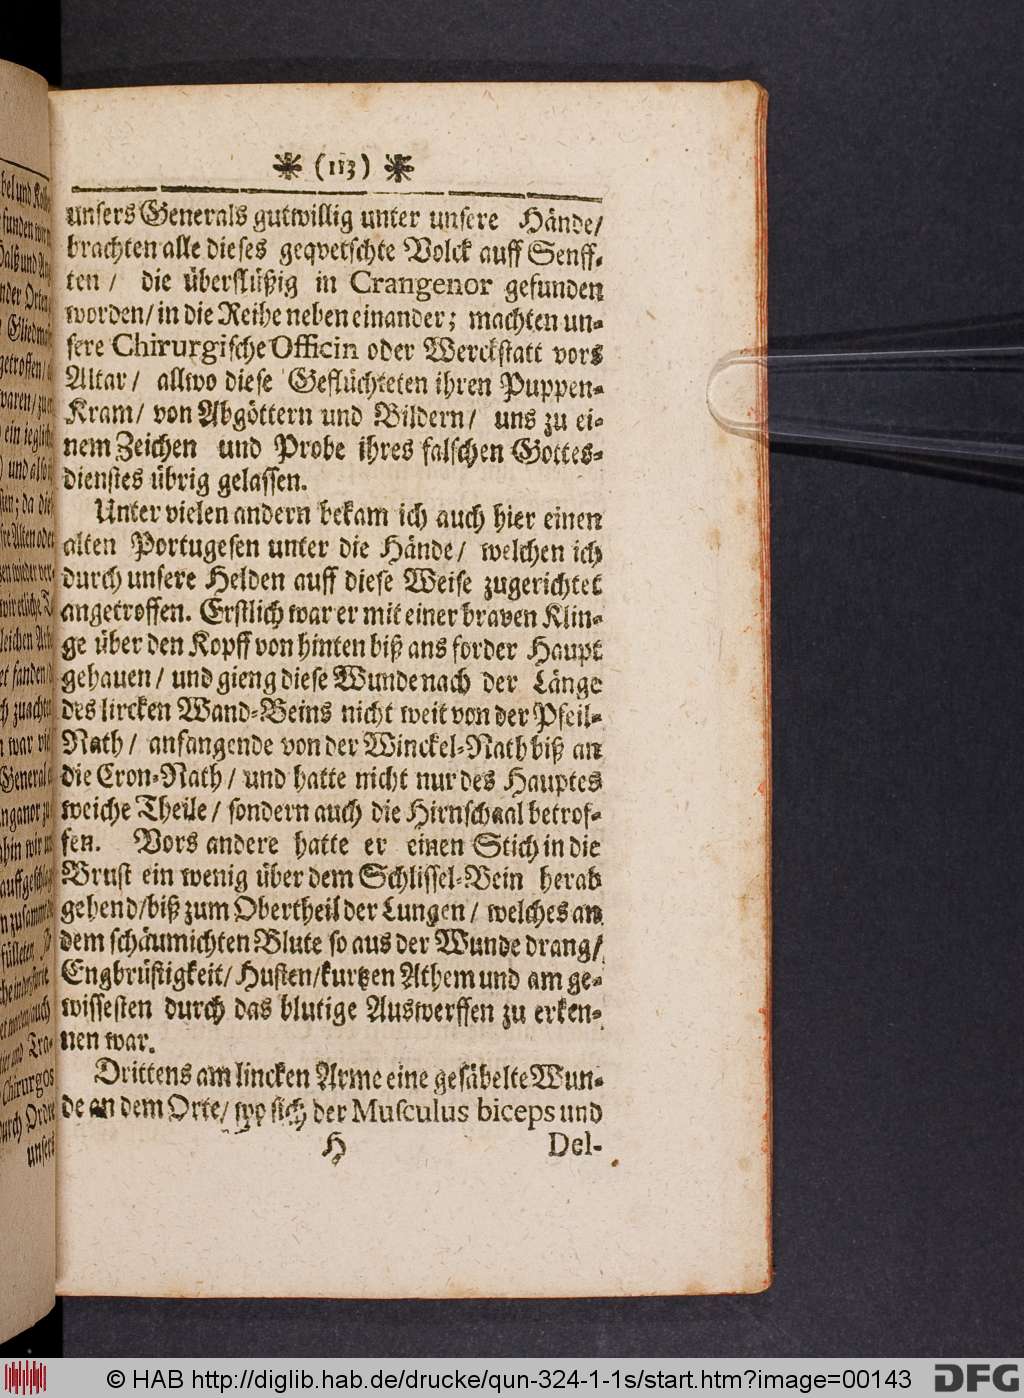 (113)
unsers Generals gutwillig unter unsere Hände/
brachten alle dieses geqvetschte Volck auff Senff-
ten / die überflüßig in Crangenor gefunden
worden/ in die Reihe neben einander; machten un-
sere Chirurgische Officin oder Werckstatt vors
Altar/ allwo diese Geflüchteten ihren Puppen-
Kram/ von Abgöttern und Bildern/ uns zu ei-
nem Zeichen und Probe ihres falschen Gottes-
dienstes übrig gelassen.
Unter vielen andern bekam ich auch hier einen
alten Portugesen unter die Hände/ welchen ich
durch unsere Helden auff diese Weise zugerichtet
angetroffen. Erstlich war er mit einer braven Klin-
ge über den Kopff von hinten biß ans forder Haupt
gehauen/ und gieng diese Wunde nach der Länge
des lircken Wand-Beins nicht weit von der Pfeil-
Nath/ anfangende von der Winckel-Nath biß an
die Cron-Nath/ und hatte nicht nur des Hauptes
weiche Theile/ sondern auch die Hirnschaal betrof-
fen. Vors andere hatte er einen Stich in die
Brust ein wenig über dem Schlissel-Bein herab
gehend/ biß zum Obertheil der Lungen/ welches an
dem schäumichten Blute so aus der Wunde drang/
Engbrüstigkeit/ Husten/ kurtzen Athem und am ge-
wissesten durch das blutige Auswerffen zu erken-
nen war.
Drittens am lincken Arme eine gesäbelte Wun-
de an dem Orte/ wo sich der Musculus biceps und
H Del-
© HAB http://diglib.hab.de/drucke/qun-324-1-1s/start.htm?image=00143
DFG